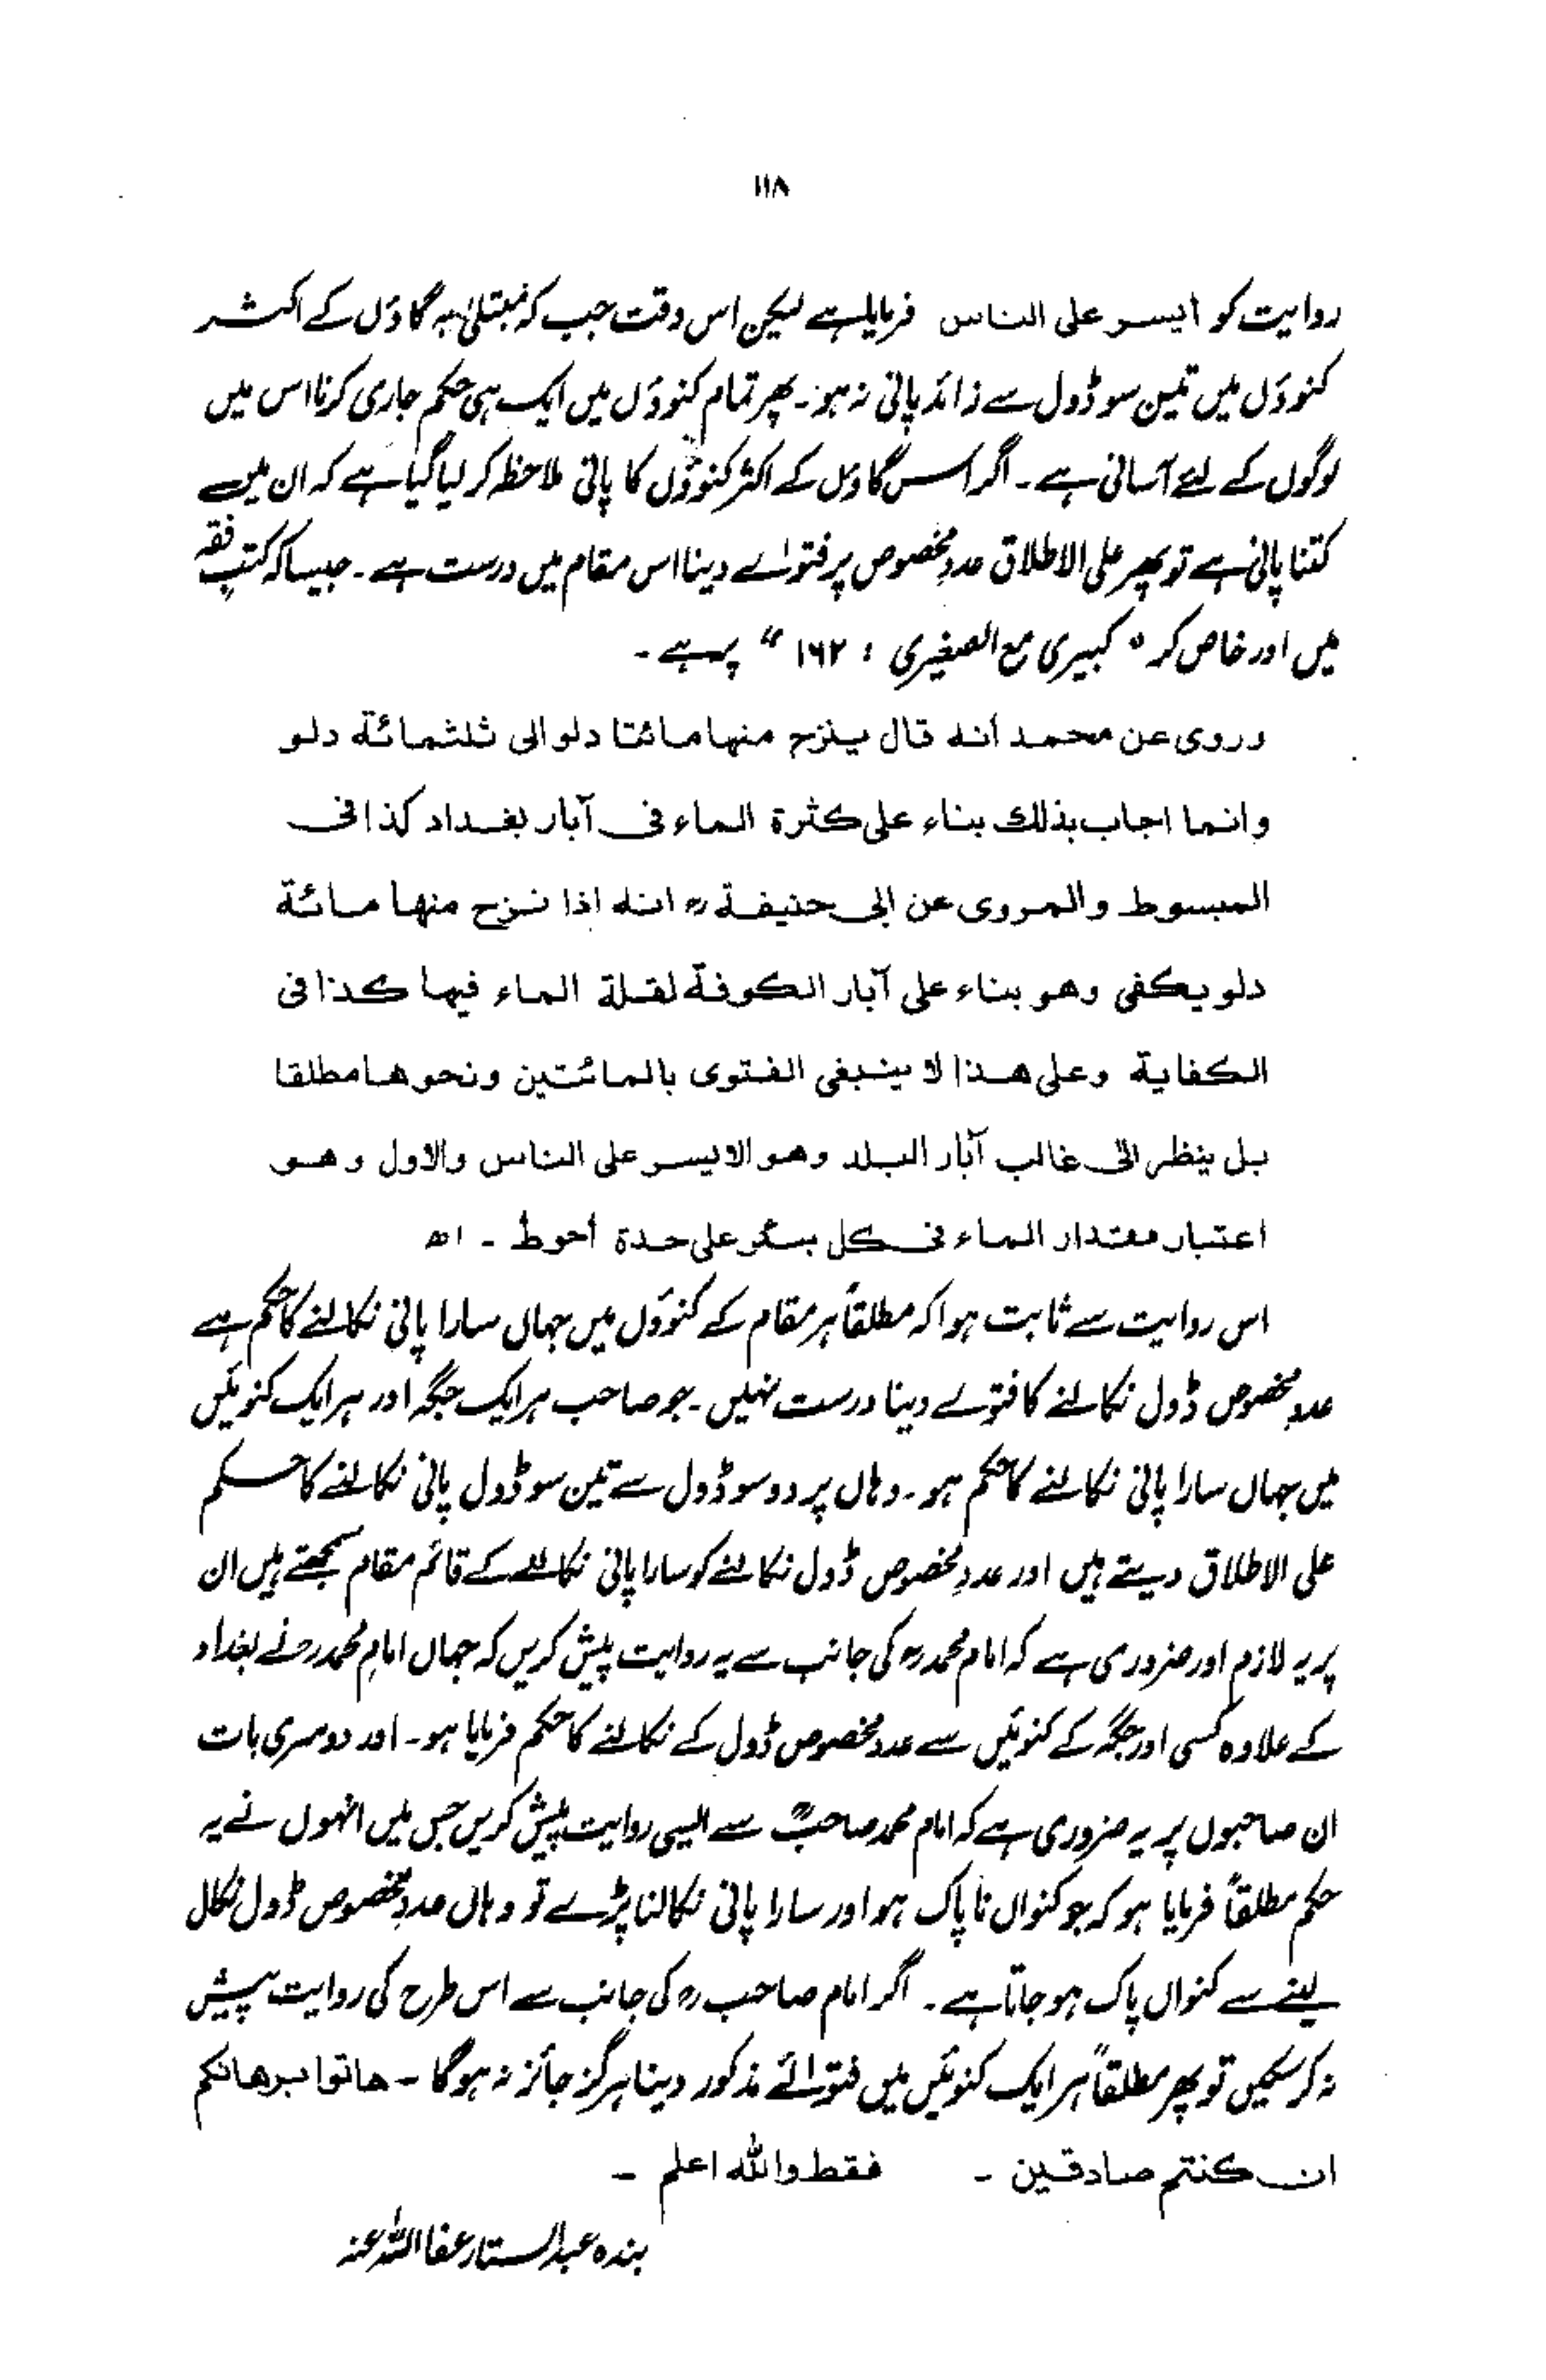 ۱۱۸
روایت کو أیسر علی الناس فرمایا ہے لیکن اس وقت جب کہ مبتلیٰ بہ گاؤں کے اکثر
کنوؤں میں تین سو ڈول سے زائد پانی نہ ہو۔ پھر تمام کنوؤں میں ایک ہی حکم جاری کرنا اس میں
لوگوں کے لئے آسانی ہے۔ اگر اس گاؤں کے اکثر کنوؤں کا پانی ملاحظہ کر لیا گیا ہے کہ ان میں سے
کتنا پانی ہے تو پھر علی الاطلاق عددِ مخصوص پر فتوےٰ دینا اس مقام میں درست ہے۔ جیسا کہ کتبِ فقہ
میں اور خاص کر " کبیری مع الصغیری : ۱۶۲ " پر ہے۔
وروی عن محمد أنه قال ینزح منها مائتا دلو الی ثلثمائة دلو
وانما اجاب بذلك بناء علی کثرة الماء فی آبار بغداد کذا فی
المبسوط والمروی عن ابی حنیفة رح انه اذا نزح منها مائة
دلو یکفی وهو بناء علی آبار الکوفة لقلة الماء فیها کذا فی
الکفایة وعلی هذا لا ینبغی الفتوی بالمائتین ونحوها مطلقا
بل ینظر الی غالب آبار البلد وهو الایسر علی الناس والاول وهو
اعتبار مقدار الماء فی کل بئر علی حدة أحوط ۔ اھ
اس روایت سے ثابت ہوا کہ مطلقاً ہر مقام کے کنوؤں میں جہاں سارا پانی نکالنے کا حکم ہے
عددِ مخصوص ڈول نکالنے کا فتوےٰ دینا درست نہیں۔ جو صاحب ہر ایک جگہ اور ہر ایک کنوئیں
میں جہاں سارا پانی نکالنے کا حکم ہو۔ وہاں پر دو سو ڈول سے تین سو ڈول پانی نکالنے کا حکم
علی الاطلاق دیتے ہیں اور عددِ مخصوص ڈول نکالنے کو سارا پانی نکالنے کے قائم مقام سمجھتے ہیں ان
پر یہ لازم اور ضروری ہے کہ امام محمد رح کی جانب سے یہ روایت پیش کریں کہ جہاں امامِ محمد رح نے بغداد
کے علاوہ کسی اور جگہ کے کنوئیں سے عدد مخصوص ڈول کے نکالنے کا حکم فرمایا ہو۔ اور دوسری بات
ان صاحبوں پر یہ ضروری ہے کہ امام محمد صاحبؒ سے ایسی روایت پیش کریں جس میں انہوں نے یہ
حکم مطلقاً فرمایا ہو کہ جو کنواں ناپاک ہو اور سارا پانی نکالنا پڑے تو وہاں عددِ مخصوص ڈول نکال
لینے سے کنواں پاک ہو جاتا ہے۔ اگر امام صاحب رح کی جانب سے اس طرح کی روایت پیش
نہ کر سکیں تو پھر مطلقاً ہر ایک کنوئیں میں فتوائے مذکور دینا ہرگز جائز نہ ہوگا ۔ هاتوا برهانکم
ان کنتم صادقین ۔ فقط واللہ اعلم ۔
بندہ عبدالستار عفا اللہ عنہ